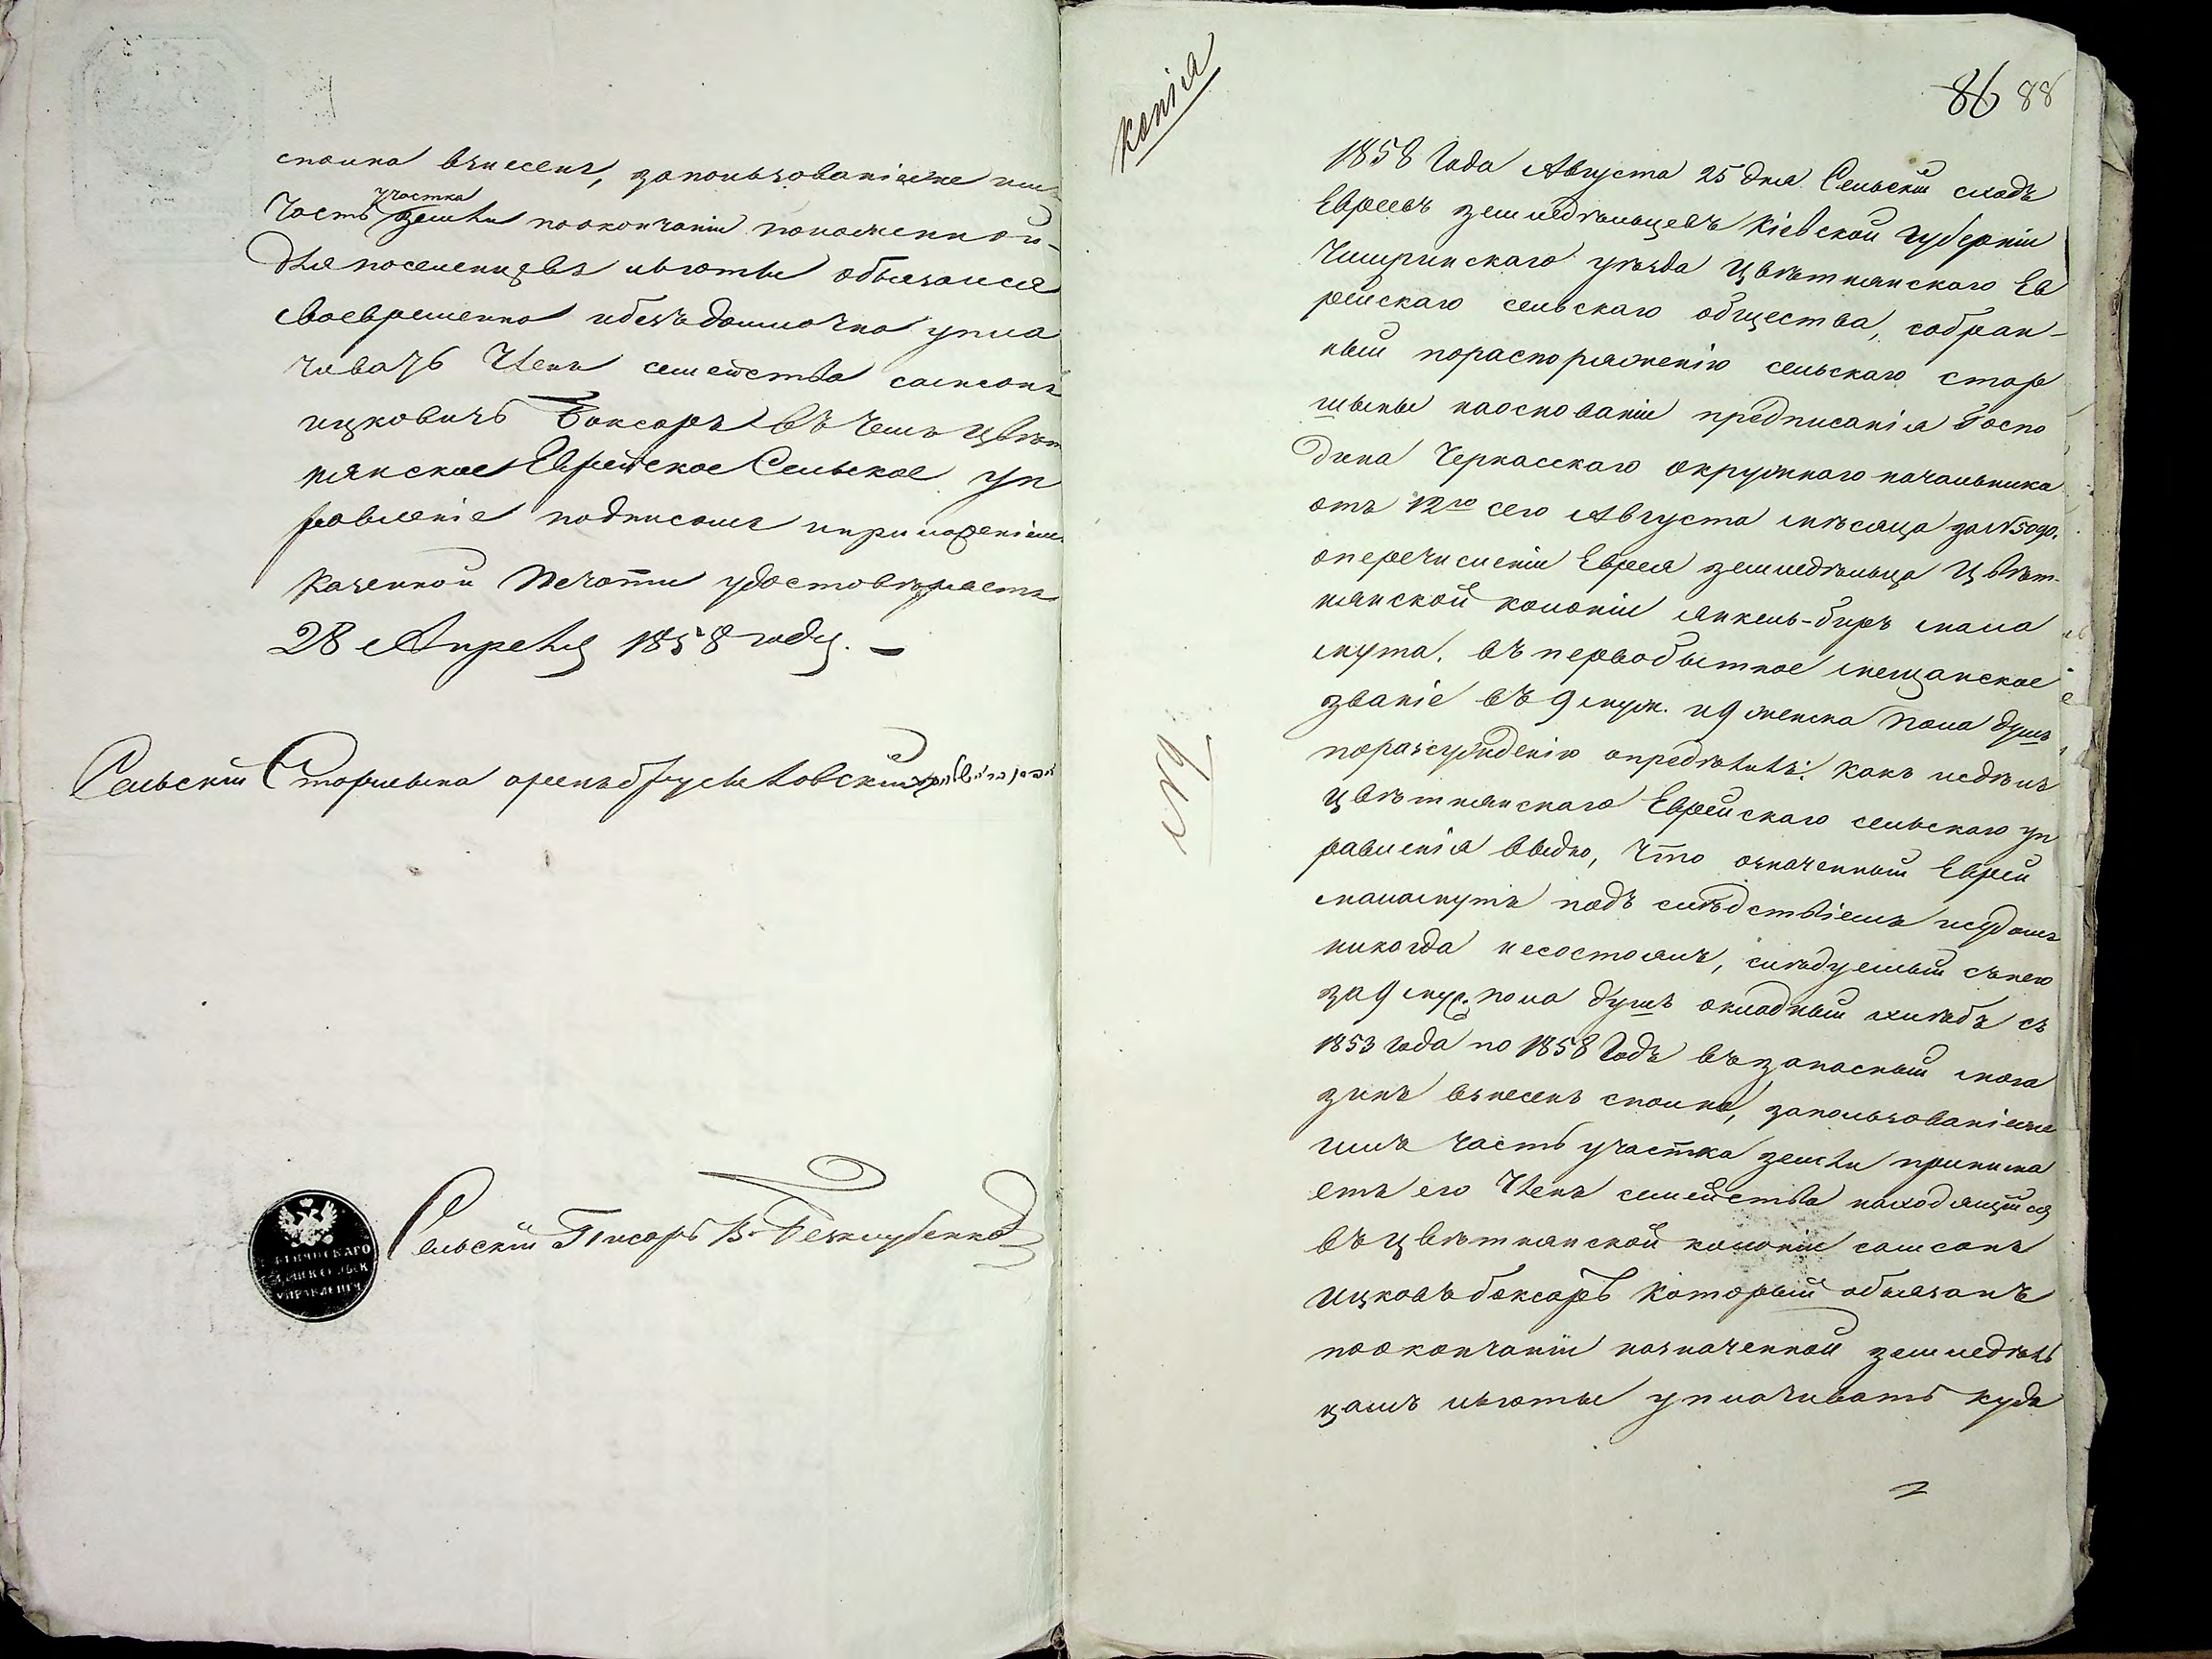 сполна взнесенъ, запользованіемже имъ
участка
часть земли поокончаніи положенной
дляпоселенцевъ льготы обязался
своевременно ибезъдоимочно упла
чивать Членъ семейства самсонъ
ицковичъ Боксаръ въ чемъ Цвѣт
нянское Еврейское Сельское Уп
равленіе подписомъ иприложеніемъ
Казенной Печати удостовѣряетъ
28 Апреля 1858 года. —
Сельскій Старшина
Сельскій Писарь В.
копія
86 88
1858 Года Августа 25 дня Сельскій сходъ
Евреевъ земледѣльцевъ Кіевской Губерніи
Чигринскаго уѣзда Цвѣтнянскаго Ев
рейскаго сельскаго общества, собран-
ный пораспоряженію сельскаго стар
шины наоснованіи предписанія Госпо
дина Черкасскаго окружнаго начальника
отъ 12го сего Августа мѣсяца за № 5090.
оперечисленіи Еврея земледѣльца Цвѣт-
нянской колоніи янкель-биръ мала
мута. въ первобытное мещанское
званіе въ 9 муж. и 9 женска пола душъ
поразсужденію опредѣлилъ: какъ издѣлъ
Цвѣтнянскаго Еврейскаго сельскаго уп
равленія видно, что означенный Еврей
маламутъ подъ слѣдствіемъ исудомъ
никогда несостоялъ, слѣдуемый снего
за 9 муж. пола душъ окладный хлѣбъ съ
1853 года по 1858 Годъ въ запасный мага
зинъ взнесенъ сполна, запользованіемже
имъ часть участка земли принима
етъ его Членъ семейства находящійся
въ цвѣтнянской колоніи самсонъ
Ицковъ боксаръ который обязанъ
поокончаніи назначенной земледѣль
цамъ льготы уплачивать куда